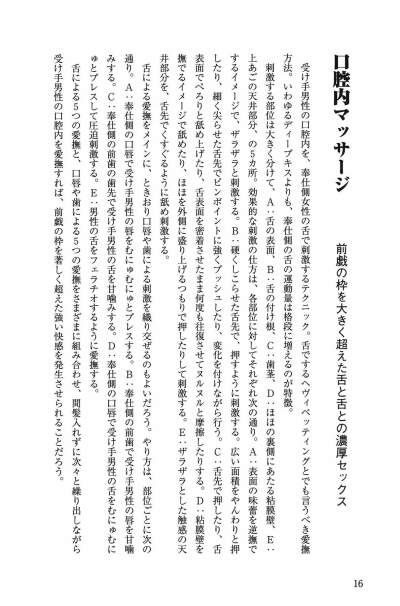 口腔内マッサージ
前戯の枠を大きく超えた舌と舌との濃厚セックス
受け手男性の口腔内を、奉仕側女性の舌で刺激するテクニック。舌でするヘヴィペッティングとでも言うべき愛撫
方法。いわゆるディープキスよりも、奉仕側の舌の運動量は格段に増えるのが特徴。
刺激する部位は大きく分けて、A：舌の表面、B：舌の付け根、C：歯茎、D：ほほの裏側にあたる粘膜壁、E：
上あごの天井部分、の5カ所。効果的な刺激の仕方は、各部位に対してそれぞれ次の通り。A：表面の味蕾を逆撫で
するイメージで、ザラザラと刺激する。B：硬くしこらせた舌先で、押すように刺激する。広い面積をやんわりと押
したり、細く尖らせた舌先でピンポイントに強くプッシュしたり、変化を付けながら行う。C：舌先で押したり、舌
表面でべろりと舐め上げたり、舌表面を密着させたまま何度も往復させてヌルヌルと摩擦したりする。D：粘膜壁を
撫でるイメージで舐めたり、ほほを外側に盛り上げるつもりで押したりして刺激する。E：ザラザラとした触感の天
井部分を、舌先でくすぐるように舐め刺激する。
舌による愛撫をメインに、ときおり口唇や歯による刺激を織り交ぜるのもよいだろう。やり方は、部位ごとに次の
通り。A：奉仕側の口唇で受け手男性の唇をむにゅむにゅとプレスする。B：奉仕側の前歯で受け手男性の唇を甘噛
みする。C：奉仕側の前歯の歯先で受け手男性の舌を甘噛みする。D：奉仕側の口唇で受け手男性の舌をむにゅむに
ゅとプレスして圧迫刺激する。E：男性の舌をフェラチオするように愛撫する。
舌による5つの愛撫と、口唇や歯による5つの愛撫をさまざまに組み合わせ、間髪入れずに次々と繰り出しながら
受け手男性の口腔内を愛撫すれば、前戯の枠を著しく超えた強い快感を発生させられることだろう。
16